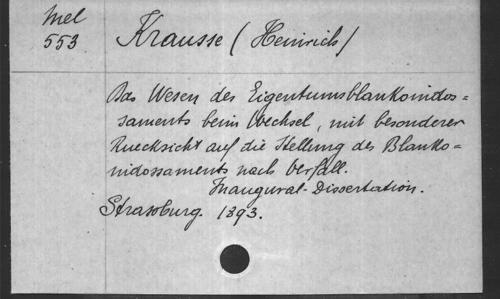 Mel
553
Krausse (Heinrich)
Das Wesen des Eigentumsblankoindos=
saments beim Wechsel, mit besonderer
Ruecksicht auf die Stellung des Blanko=
indossaments nach Verfall.
Inaugural-Dissertation.
Strassburg. 1893.